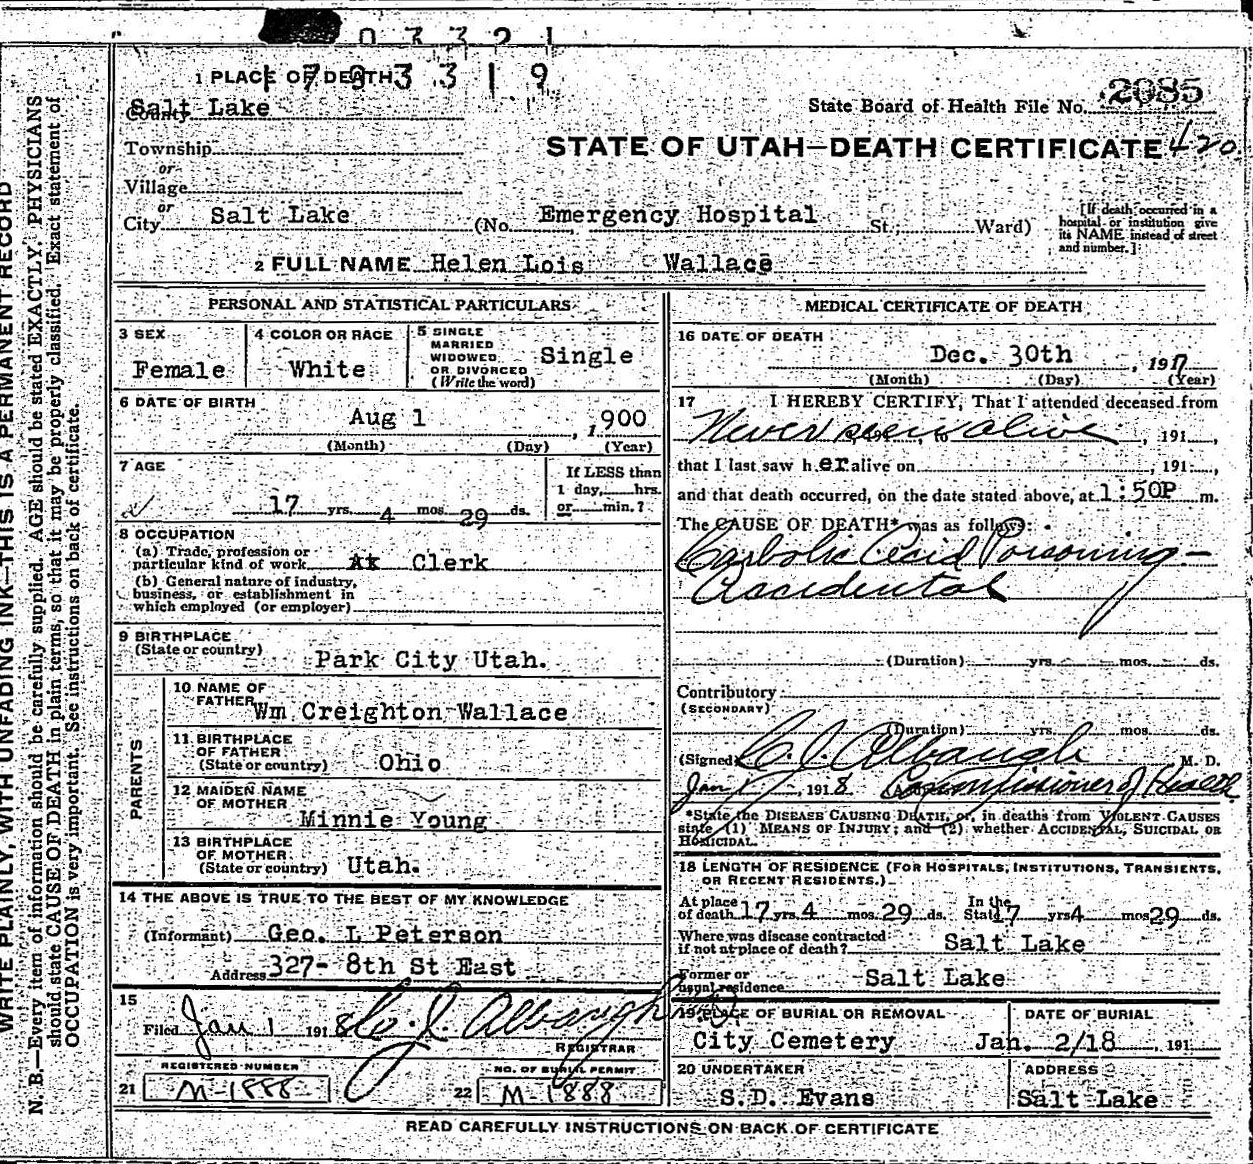 0 3 3 2 1
1 7 9 3 3 1 9
1 PLACE OF DEATH
County Salt Lake
State Board of Health File No. 2085
Township
STATE OF UTAH—DEATH CERTIFICATE 420
or
Village
or
City Salt Lake (No. Emergency Hospital St.; Ward)
[If death occurred in a
hospital or institution give
its NAME instead of street
and number.]
2 FULL NAME Helen Lois Wallace
PERSONAL AND STATISTICAL PARTICULARS
3 SEX
Female
4 COLOR OR RACE
White
5 SINGLE
MARRIED
WIDOWED
OR DIVORCED
(Write the word)
Single
6 DATE OF BIRTH
Aug 1 , 1900
(Month) (Day) (Year)
7 AGE
17 yrs. 4 mos. 29 ds.
If LESS than
1 day, hrs.
or min.?
8 OCCUPATION
(a) Trade, profession or
particular kind of work At Clerk
(b) General nature of industry,
business, or establishment in
which employed (or employer)
9 BIRTHPLACE
(State or country) Park City Utah.
PARENTS
10 NAME OF
FATHER Wm Creighton Wallace
11 BIRTHPLACE
OF FATHER
(State or country) Ohio
12 MAIDEN NAME
OF MOTHER
Minnie Young
13 BIRTHPLACE
OF MOTHER
(State or country) Utah.
14 THE ABOVE IS TRUE TO THE BEST OF MY KNOWLEDGE
(Informant) Geo. L Peterson
Address 327- 8th St East
15
Filed Jan 1 1918 C. J. Albaugh
REGISTRAR
REGISTERED NUMBER
21 M-1888
NO. OF BURIAL PERMIT
22 M-1888
MEDICAL CERTIFICATE OF DEATH
16 DATE OF DEATH
Dec. 30th , 1917
(Month) (Day) (Year)
17 I HEREBY CERTIFY, That I attended deceased from
Never seen alive , 191 ,
that I last saw her alive on , 191 ,
and that death occurred, on the date stated above, at 1:50P m.
The CAUSE OF DEATH* was as follows:
Carbolic Acid Poisoning—
Accidental
(Duration) yrs. mos. ds.
Contributory
(SECONDARY)
(Duration) yrs. mos. ds.
(Signed) C. J. Albaugh M. D.
Jan 1 , 1918 (Address) Commissioner of Health
*State the DISEASE CAUSING DEATH, or, in deaths from VIOLENT CAUSES
state (1) MEANS OF INJURY; and (2) whether ACCIDENTAL, SUICIDAL OR
HOMICIDAL.
18 LENGTH OF RESIDENCE (FOR HOSPITALS, INSTITUTIONS, TRANSIENTS,
OR RECENT RESIDENTS.)
At place
of death 17 yrs. 4 mos. 29 ds. In the
State 17 yrs 4 mos 29 ds.
Where was disease contracted
if not at place of death? Salt Lake
Former or
usual residence Salt Lake
19 PLACE OF BURIAL OR REMOVAL
City Cemetery
DATE OF BURIAL
Jan. 2/18 , 191
20 UNDERTAKER
S.D. Evans
ADDRESS
Salt Lake
READ CAREFULLY INSTRUCTIONS ON BACK OF CERTIFICATE
WRITE PLAINLY, WITH UNFADING INK—THIS IS A PERMANENT RECORD
N. B.—Every item of information should be carefully supplied. AGE should be stated EXACTLY. PHYSICIANS
should state CAUSE OF DEATH in plain terms, so that it may be properly classified. Exact statement of
OCCUPATION is very important. See instructions on back of certificate.